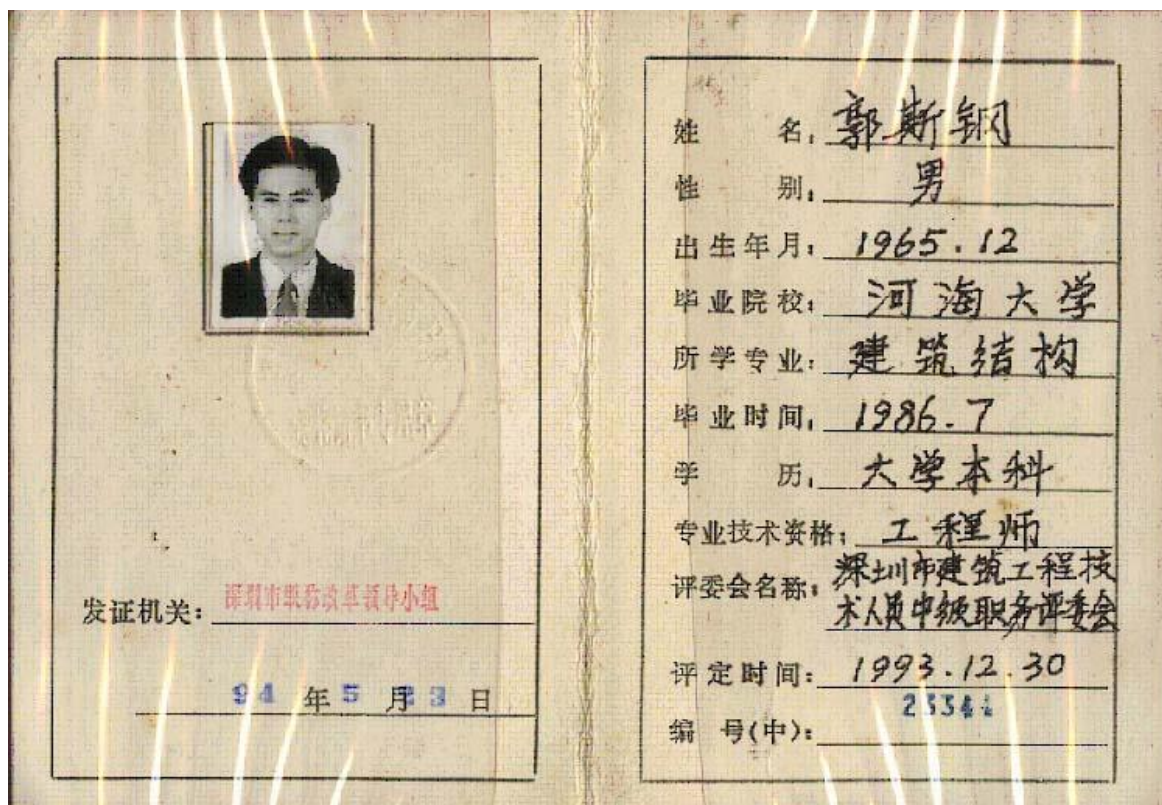 发证机关：深圳市职称改革领导小组
94 年 5 月 23 日
姓 名：郭斯钢
性 别：男
出生年月：1965.12
毕业院校：河海大学
所学专业：建筑结构
毕业时间：1986.7
学 历：大学本科
专业技术资格：工程师
评委会名称：深圳市建筑工程技
术人员中级职务评委会
评定时间：1993.12.30
编 号(中)：